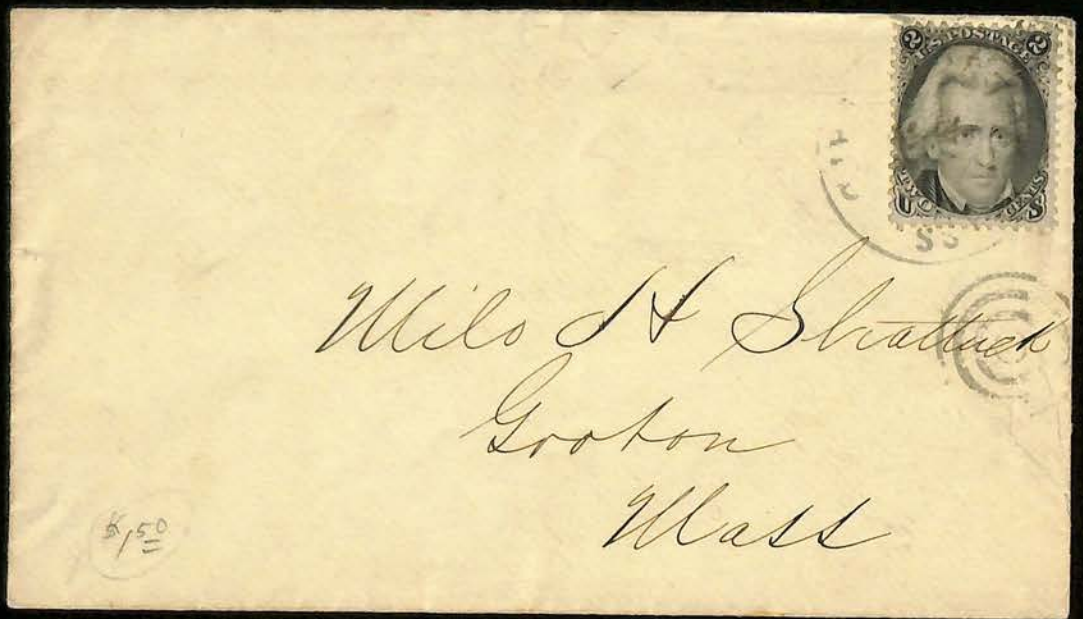 2 U.S. POSTAGE 2
TWO CENTS
U S
SS
Milo H Shattuck
Groton
Mass